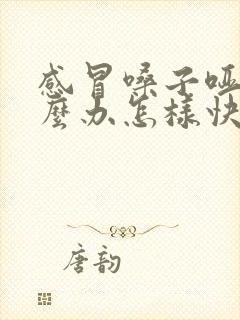 感冒嗓子哑
麽办怎样快
唐韵